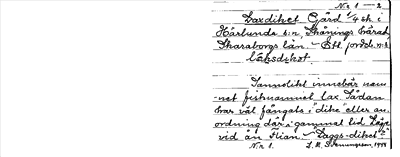 Nr 1 — 2
Laxdiket Gård 1/4 sk i
Härlunda s:n, Skånings härad,
Skaraborgs län. — Etl. jordeb. n:o
läksdikot
Sannolikt innebär nam-
net fisknamnet lax. Sådan
har väl fångats i "dike" eller an-
ordning där i gammal tid. Läge
vid ån Flian. — Laggs-diket
Nr 1.